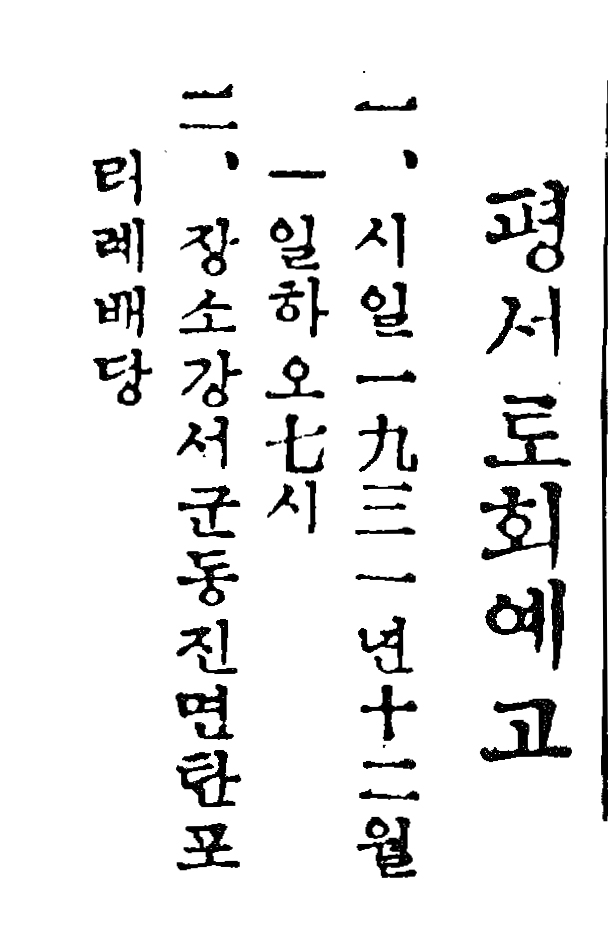 평서로회예고
一、시일一九三一년十二월
一일하오七시
二、장소강서군동진면탄포
터레배당